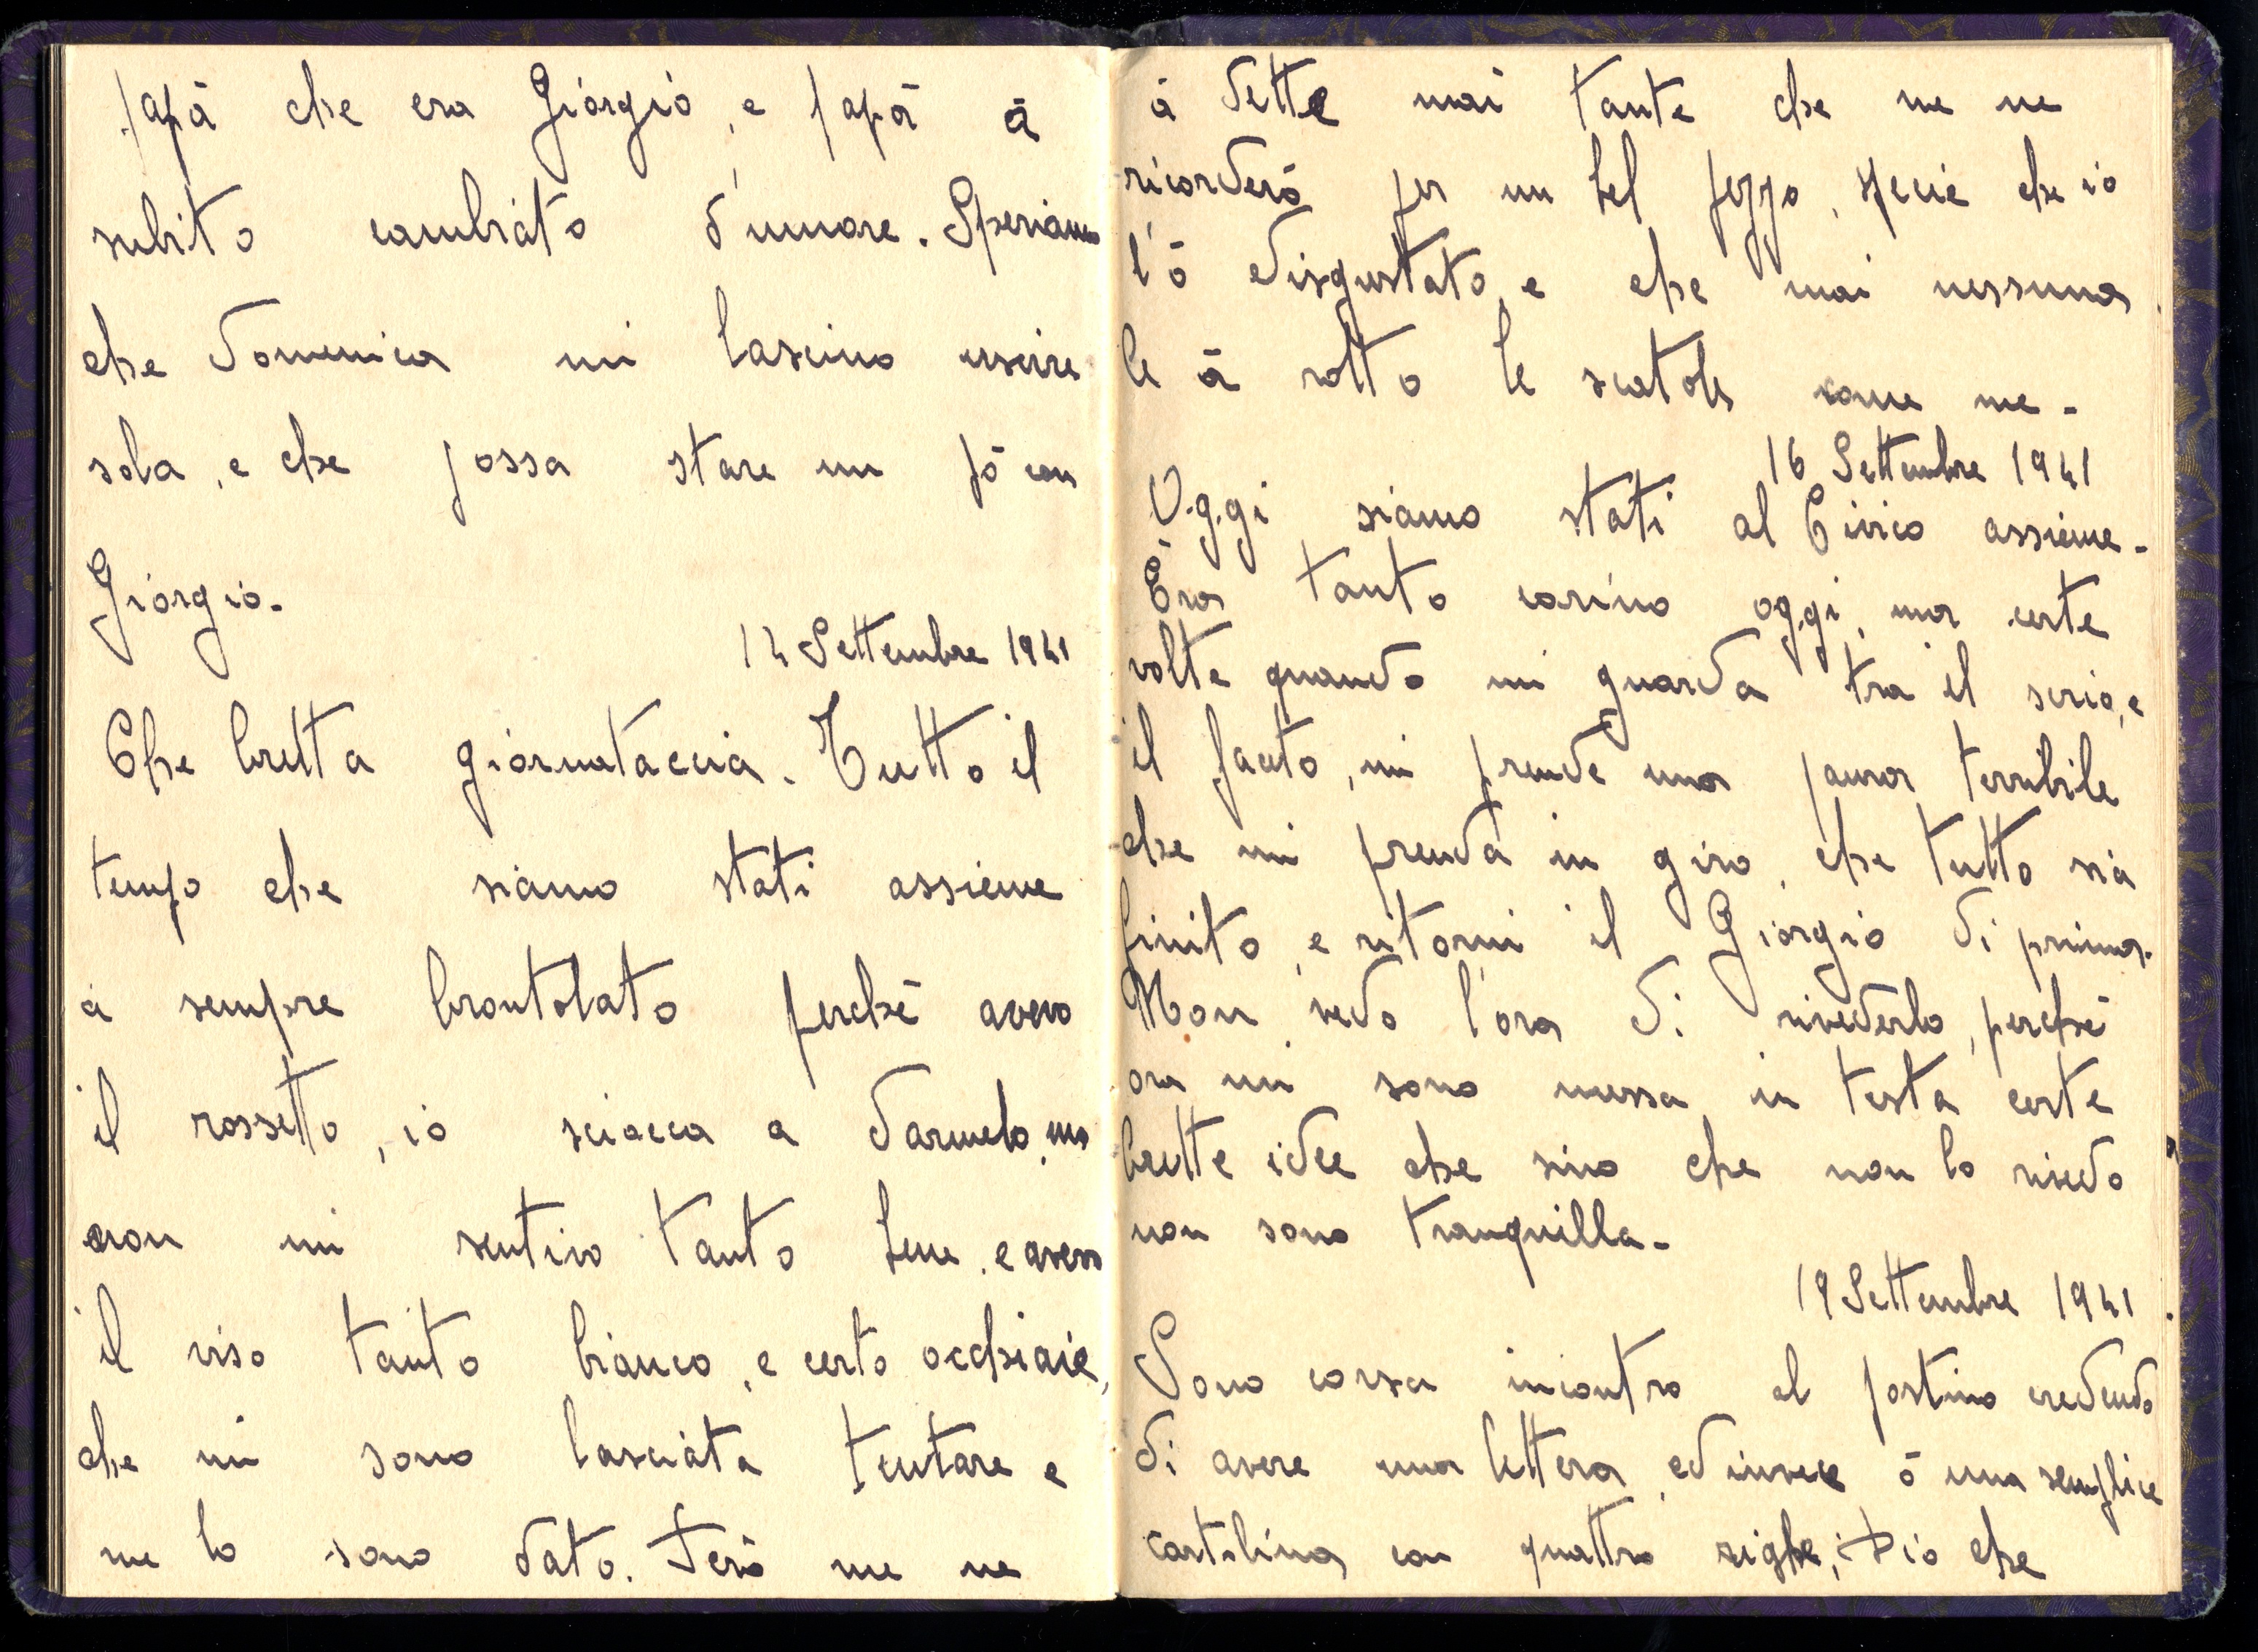 papā che era Giorgio, e papā ā
subito cambiato d'umore. Speriamo
che Domenica mi lascino uscire
sola, e che possa stare un pō con
Giorgio.
14 Settembre 1941
Che brutta giornataccia. Tutto il
tempo che siamo stati assieme
a sempre brontolato perchē avevo
il rossetto, io sciocca a darmelo, ma
non mi sentivo tanto bene, e avevo
il viso tanto bianco, e certo occhiaie,
che mi sono lasciata tentare e
me lo sono dato. Perō me ne
ā dette mai tante che me ne
ricorderō per un bel pezzo, specie che io
l'ō disgustato, e che mai nessuna
le ā rotto le scatole come me.
16 Settembre 1941
Oggi siamo stati al Civico assieme.
Era tanto carino oggi, ma certe
volte quando mi guarda tra il serio, e
il faceto, mi prende una paura terribile
che mi prenda in giro, che tutto sia
finito, e ritorni il Giorgio di prima.
Non vedo l'ora di rivederlo, perchē
ora mi sono messa in testa certe
brutte idee che sino che non lo rivedo
non sono tranquilla.
19 Settembre 1941.
Sono corsa incontro al postino credendo
di avere una lettera, ed invece ō una semplice
cartolina con quattro righe, Dio che